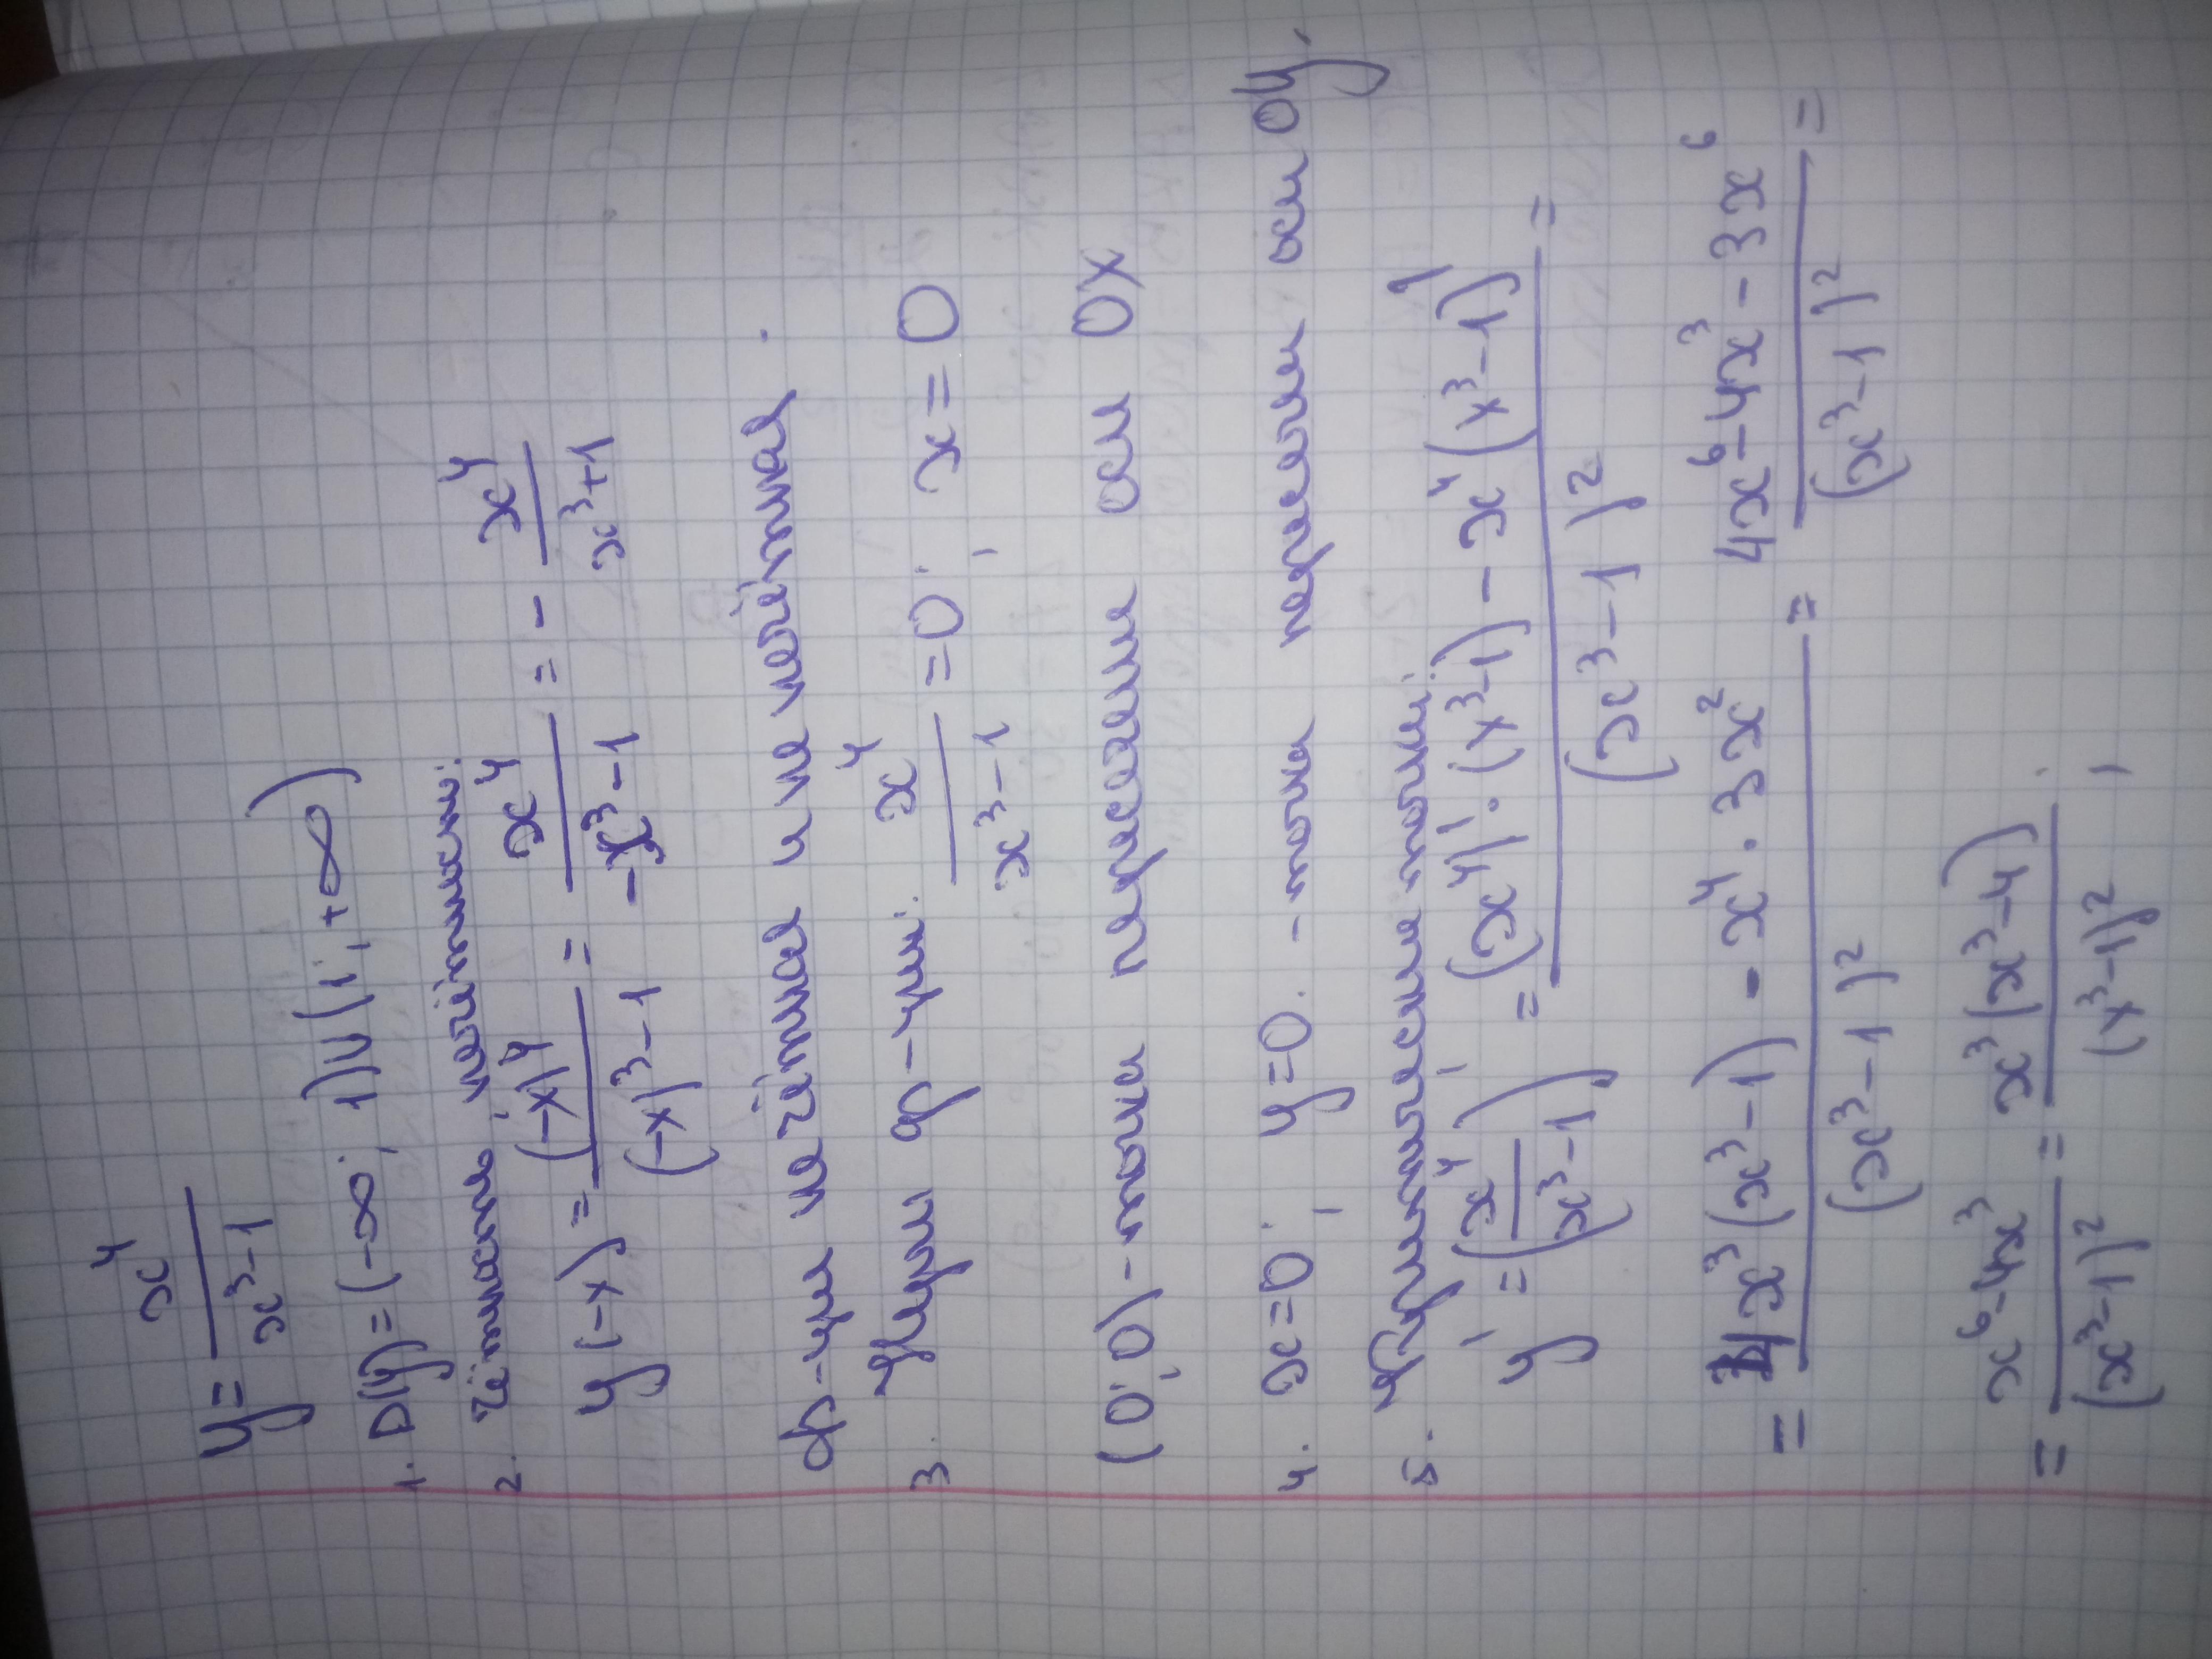 y = x⁴/(x³-1)
1. D(y) = (-∞; 1)∪(1; +∞)
2. Чётность, нечётность:
y(-x) = (-x)⁴/((-x)³-1) = x⁴/(-x³-1) = - x⁴/(x³+1)
ф-ция не чётная и не нечётная.
3. Нули ф-ции: x⁴/(x³-1) = 0; x = 0
(0;0) - точка пересечения оси OX
4. x=0; y=0. - точка пересечения оси OY.
5. Критические точки:
y' = (x⁴/(x³-1))' = ((x⁴)'·(x³-1) - x⁴(x³-1)')/(x³-1)² =
= (4x³(x³-1) - x⁴·3x²)/(x³-1)² = (4x⁶-4x³-3x⁶)/(x³-1)² =
= (x⁶-4x³)/(x³-1)² = x³(x³-4)/(x³-1)²;